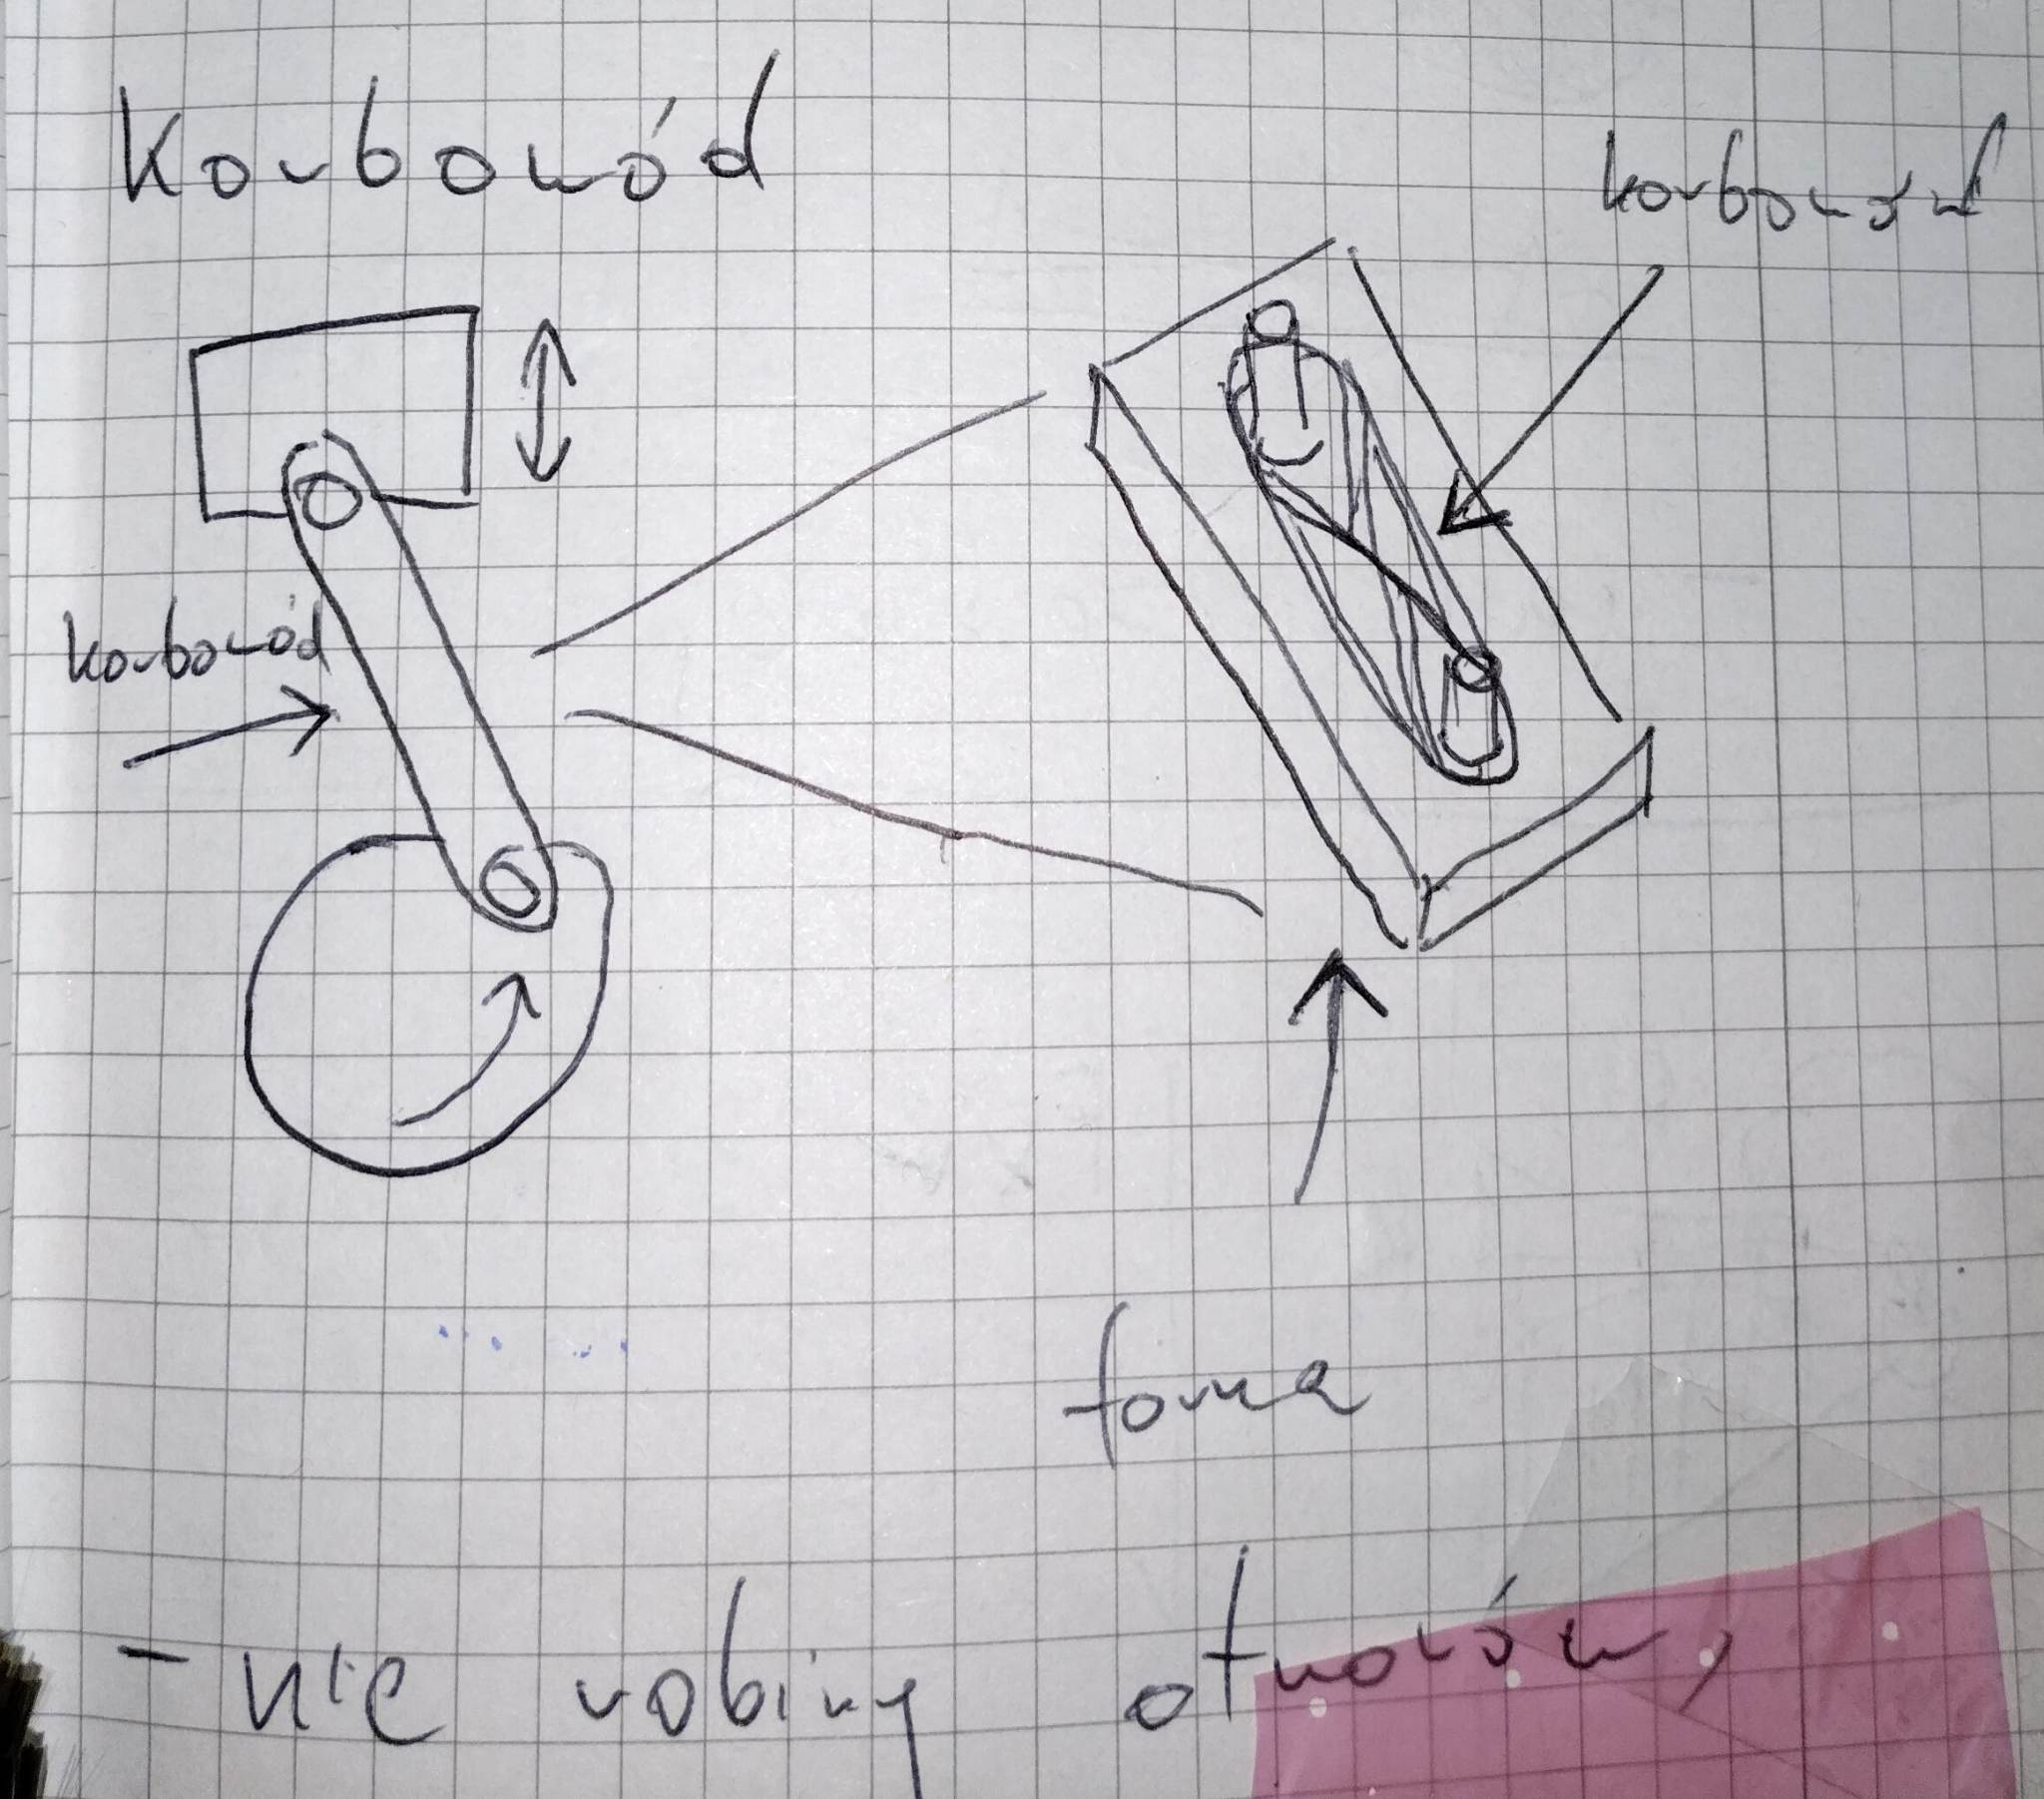 Korbowód
korbowód
korbowód
forma
- nie robimy otworów,